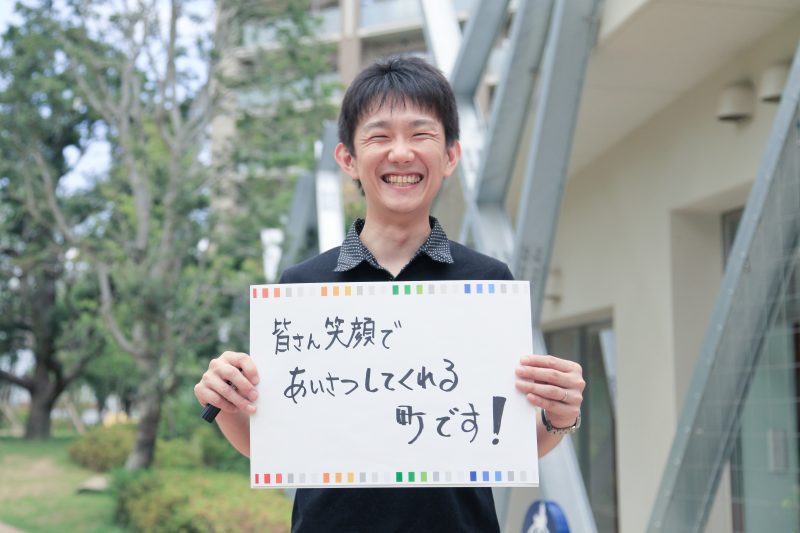 皆さん笑顔で
あいさつしてくれる
町です!